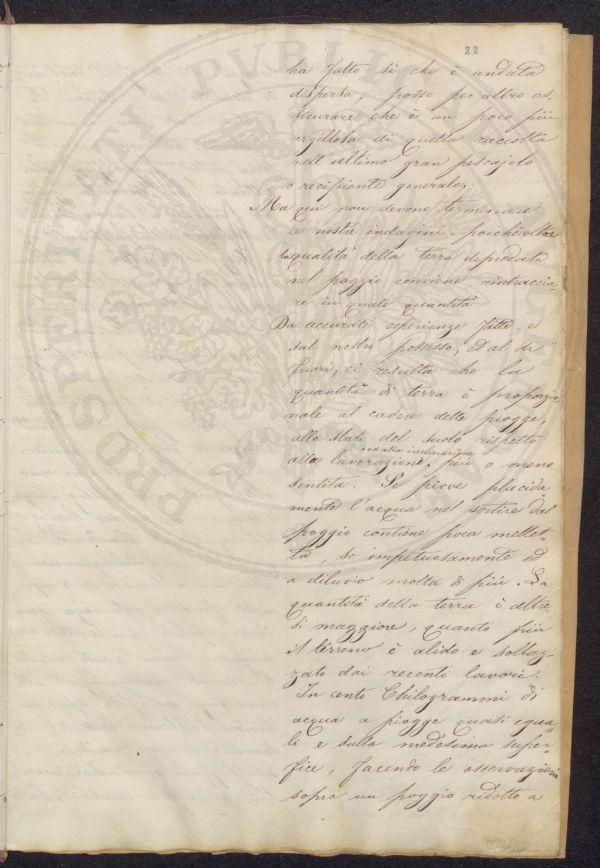 22
ha fatto sì che è andata
dispersa; posso per altro as-
sicurare che è un poco più
argillosa di quella raccolta
nell'ultimo gran pescajolo
o recipiente generale.
Ma qui non devono terminare
le nostre indagini, poichè oltre
la qualità della terra depredata
nel poggio conviene rintraccia-
re in quale quantità
Da accurate esperienze fatte, e
sul nostro possesso, ed al di
fuori, ci resulta che la
quantità di terra è proporzio
nale al cadere delle piogge,
allo stato del suolo rispetto
ed alla inclinazione
alla lavorazione, più o meno
sentita. Se piove placida
mente l'acqua nel sortire dal
poggio contiene poca mellet-
ta, se impetuosamente ed
a diluvio molta di più. La
quantità della terra è altre
sì maggiore, quanto più
il terreno è alido e sollaz-
zato dai recenti lavori.
In cento Chilogrammi di
acqua a piogge quasi egua-
li e sulla medesima super-
fice, facendo le osservazioni
sopra un poggio ridotto a
PROSPERITATI PVBLI